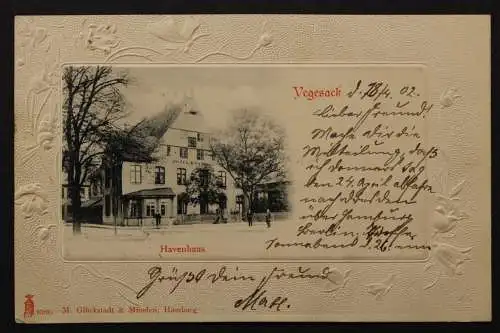 Vegesack
d. 18/4. 02.
Lieber Freund!
Mache dir die
Mitteilung, daß
ich Donnerstag
den 24. April abfahre
nach
über Hamburg
Berlin,
Sonnabend d. 26.
Havenhaus
Grüßt Dein Freund
Max.
M. Glückstadt & Münden, Hamburg